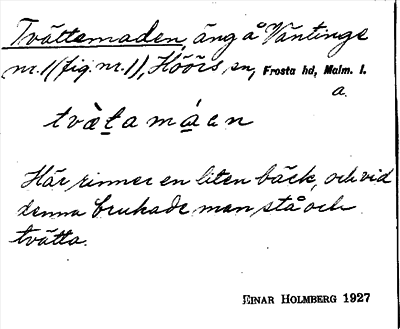 Tvättemaden, äng å Väntinge
nr. 1 (fig. nr. 1), Höörs, sn, Frosta hd, Malm. l.
a.
tvätamáen
Här rinner en liten bäck, och vid
denna brukade man stå och
tvätta.
EINAR HOLMBERG 1927